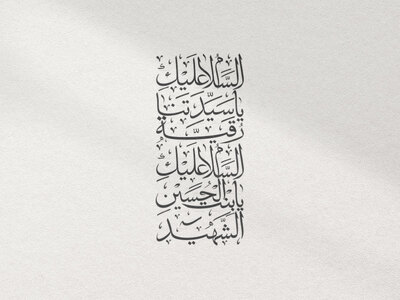 السَّلامُ عَلَيْكِ
يا سَيِّدَتَنا
رُقَيَّة
السَّلامُ عَلَيْكِ
يا بْنتَ الحُسَيْنِ
الشَّهيدِ